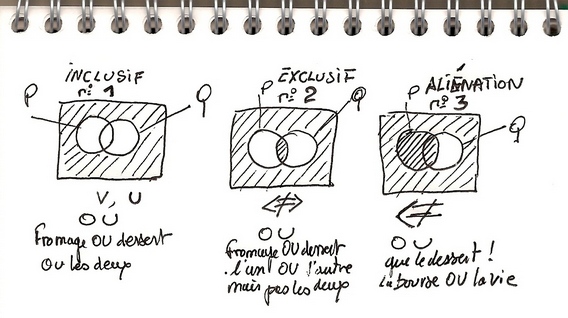 INCLUSIF
n° 1
P
Q
V, U
OU
Fromage OU dessert
OU les deux
EXCLUSIF
n° 2
P
Q
OU
Fromage OU dessert
l'un OU l'autre
mais pas les deux
ALIÉNATION
n° 3
P
Q
OU
que le dessert !
La bourse OU la vie